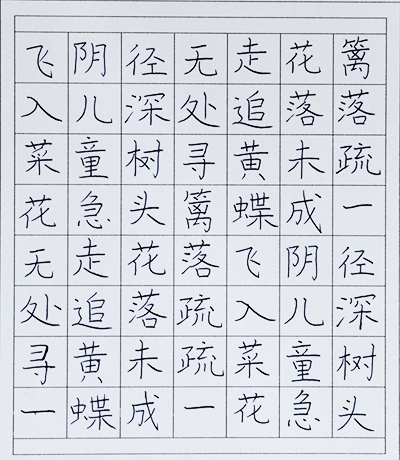 篱落疏一径深树头
花落未成阴儿童急
走追黄蝶飞入菜花
无处寻篱落疏疏一
径深树头花落未成
阴儿童急走追黄蝶
飞入菜花无处寻一